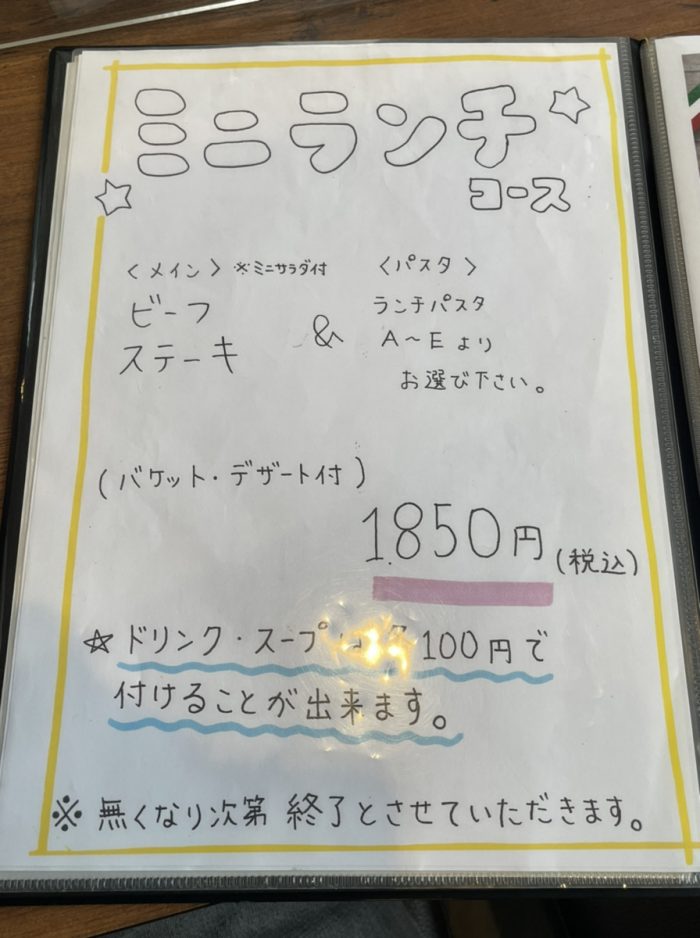 ミニランチ
コース
〈メイン〉 ※ミニサラダ付
ビーフ
ステーキ
&
〈パスタ〉
ランチパスタ
A～Eより
お選び下さい。
(バケット・デザート付)
1.850円(税込)
☆ドリンク・スープ 100円で
付けることが出来ます。
※無くなり次第 終了とさせていただきます。